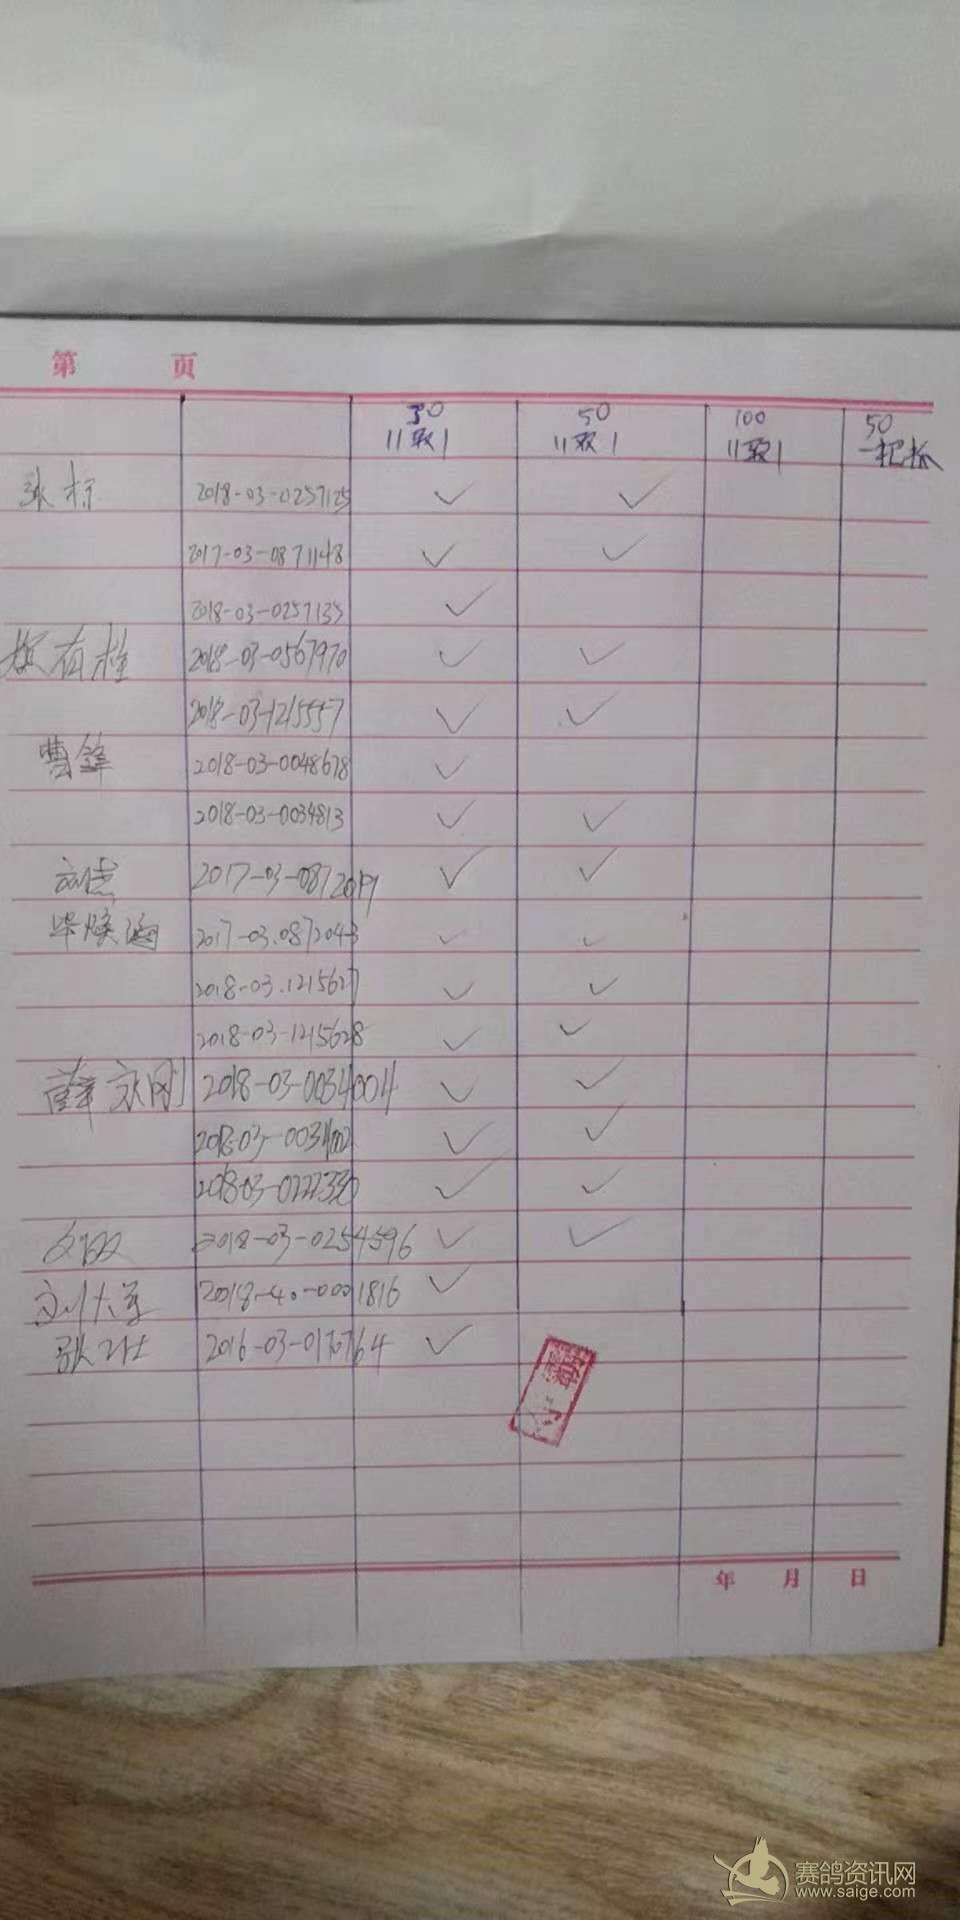 第 页
30 50 100 50
11取1 11取1 11取1 一把抓
张标 2018-03-0257125 ✓ ✓
2017-03-0871148 ✓ ✓
2018-03-0257135 ✓
有栓 2018-03-0567970 ✓ ✓
2018-03-1215557 ✓ ✓
曹锋 2018-03-0048678 ✓
2018-03-0034813 ✓ ✓
2017-03-0872019 ✓ ✓
毕焕 2017-03.0872043 ✓ ✓
2018-03.1215627 ✓ ✓
2018-03-1215628 ✓ ✓
薛永刚 2018-03-0034004 ✓ ✓
2018-03-0034002 ✓ ✓
2018-03- ✓ ✓
2018-03-0254596 ✓ ✓
刘大军 2018-40-0001816 ✓
张 2016-03- ✓
年 月 日
赛鸽资讯网
www.saige.com